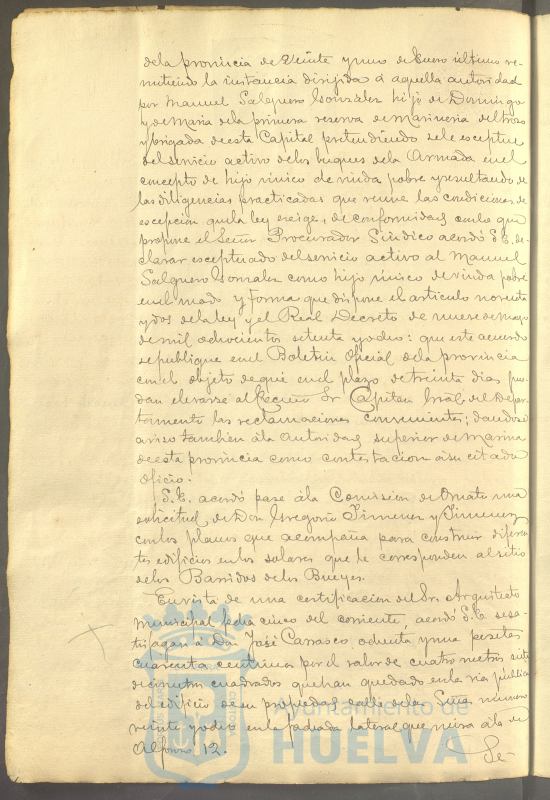 dela provincia de veinte y uno de Enero último re-
mitiendo la instancia dirijida á aquella autoridad
por Manuel Salguero Gonzalez hijo de Domingo
y de Maria dela primera reserva de Marineria del trozo
y brigada de esta Capital pretendiendo se le esceptue
del servicio activo delos buques dela Armada en el
concepto de hijo único de viuda pobre y resultando de
las diligencias practicadas que reune las condiciones de
escepcion que la ley exige; de conformidad con lo que
propone el Señor Procurador Sindico acordó S.E. de-
clarar esceptuado del servicio activo al Manuel
Salguero Gonzalez como hijo único de viuda pobre
en el modo y forma que dispone el articulo noventa
y dos dela ley y el Real Decreto de nueve de Mayo
de mil ochocientos setenta y ocho: que este acuerdo
se publique en el Boletin Oficial dela provincia
con el objeto de que en el plazo de treinta dias pue-
dan elevarse al Excmo Sr Capitan Gral del Depar-
tamento las reclamaciones convenientes; dandose
aviso tambien ála autoridad superior de Marina
de esta provincia como contestacion á su citado
oficio.
S.E. acordó pase ála Comision de Ornato una
solicitud de Don Gregorio Jimenez y Jimenez
con los planos que acompaña para construir diferen-
tes edificios en los solares que le corresponden al sitio
de los Barridos de los Bueyes.
En vista de una certificacion del Sr. Arquitecto
municipal fecha cinco del corriente, acordó S.E. se sa-
tisfagan á Don José Carrasco ochenta y una pesetas
cuarenta centimos por el valor de cuatro metros siete
decimetros cuadrados que han quedado en la via publica
del edificio de su propiedad calle dela número
veinte y ocho en la fachada lateral que mira á la de
Alfonso 12.
Se-
Ayuntamiento de
HUELVA